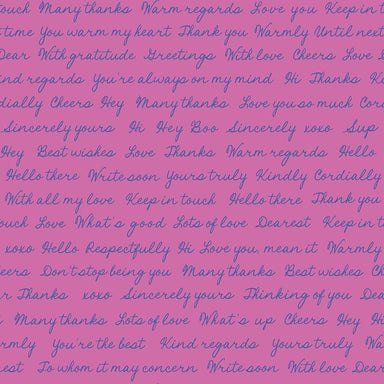 touch Many thanks Warm regards Love you Keep in t
time You warm my heart Thank you Warmly Until next
Dear With gratitude Greetings With love Cheers Love
ind regards You're always on my mind Hi Thanks K
dially Cheers Hey Many thanks Love you so much Cord
Sincerely yours Hi Hey Boo Sincerely xoxo Sup
Hey Best wishes Love Thanks Warm regards Hello
Hello there Write soon Yours truly Kindly Cordially
With all my love Keep in touch Hello there Thank you
ouch Love What's good Lots of love Dearest Keep in t
xoxo Hello Respectfully Hi Love you, mean it Warmly
eers Don't stop being you Many thanks Best wishes Ch
r Thanks xoxo Sincerely yours Thinking of you Dea
Many thanks Lots of love What's up Cheers Hey Hi
rmly You're the best Kind regards Yours truly Wa
est To whom it may concern Write soon With love Dear